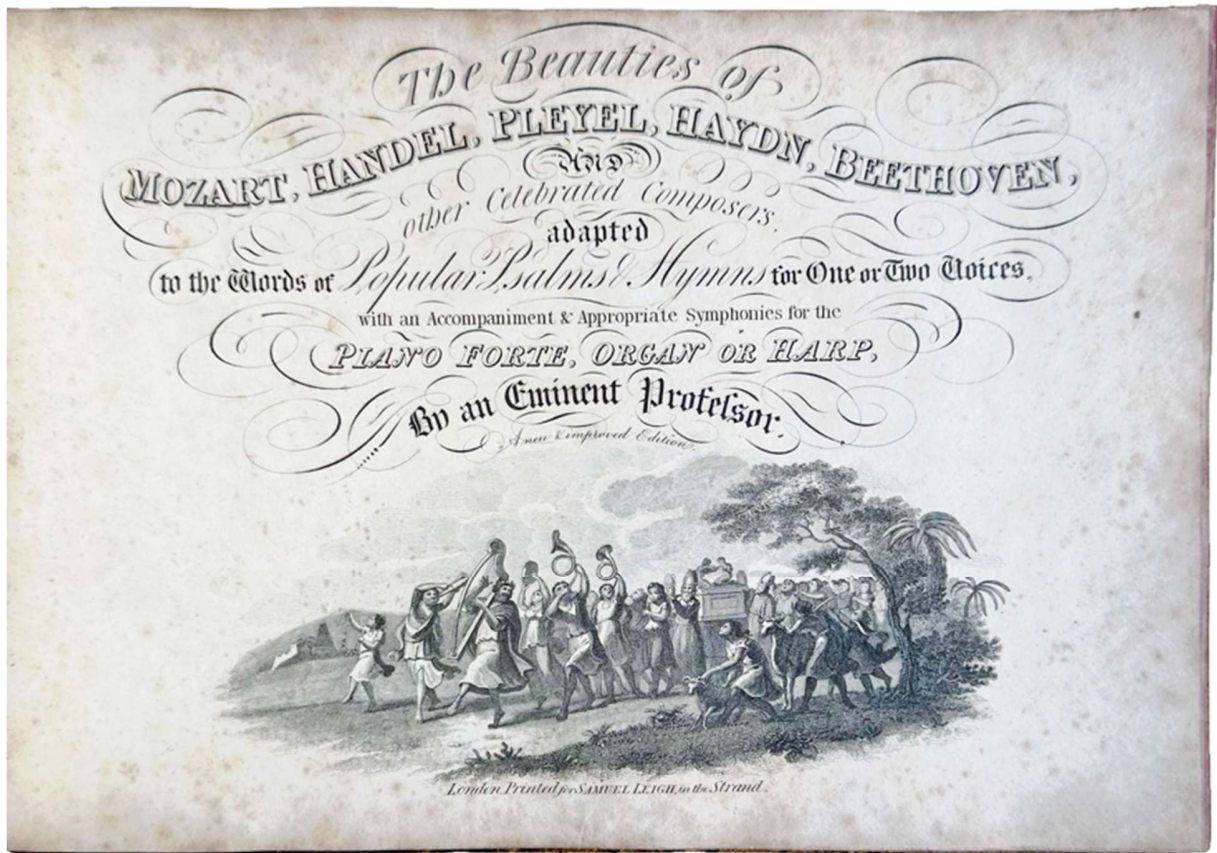 The Beauties of
MOZART, HANDEL, PLEYEL, HAYDN, BEETHOVEN,
AND
other Celebrated Composers,
adapted
to the Words of Popular Psalms & Hymns for One or Two Voices,
with an Accompaniment & Appropriate Symphonies for the
PIANO FORTE, ORGAN OR HARP,
By an Eminent Profeſsor.
A new & improved Edition.
London, Printed for SAMUEL LEIGH, in the Strand.